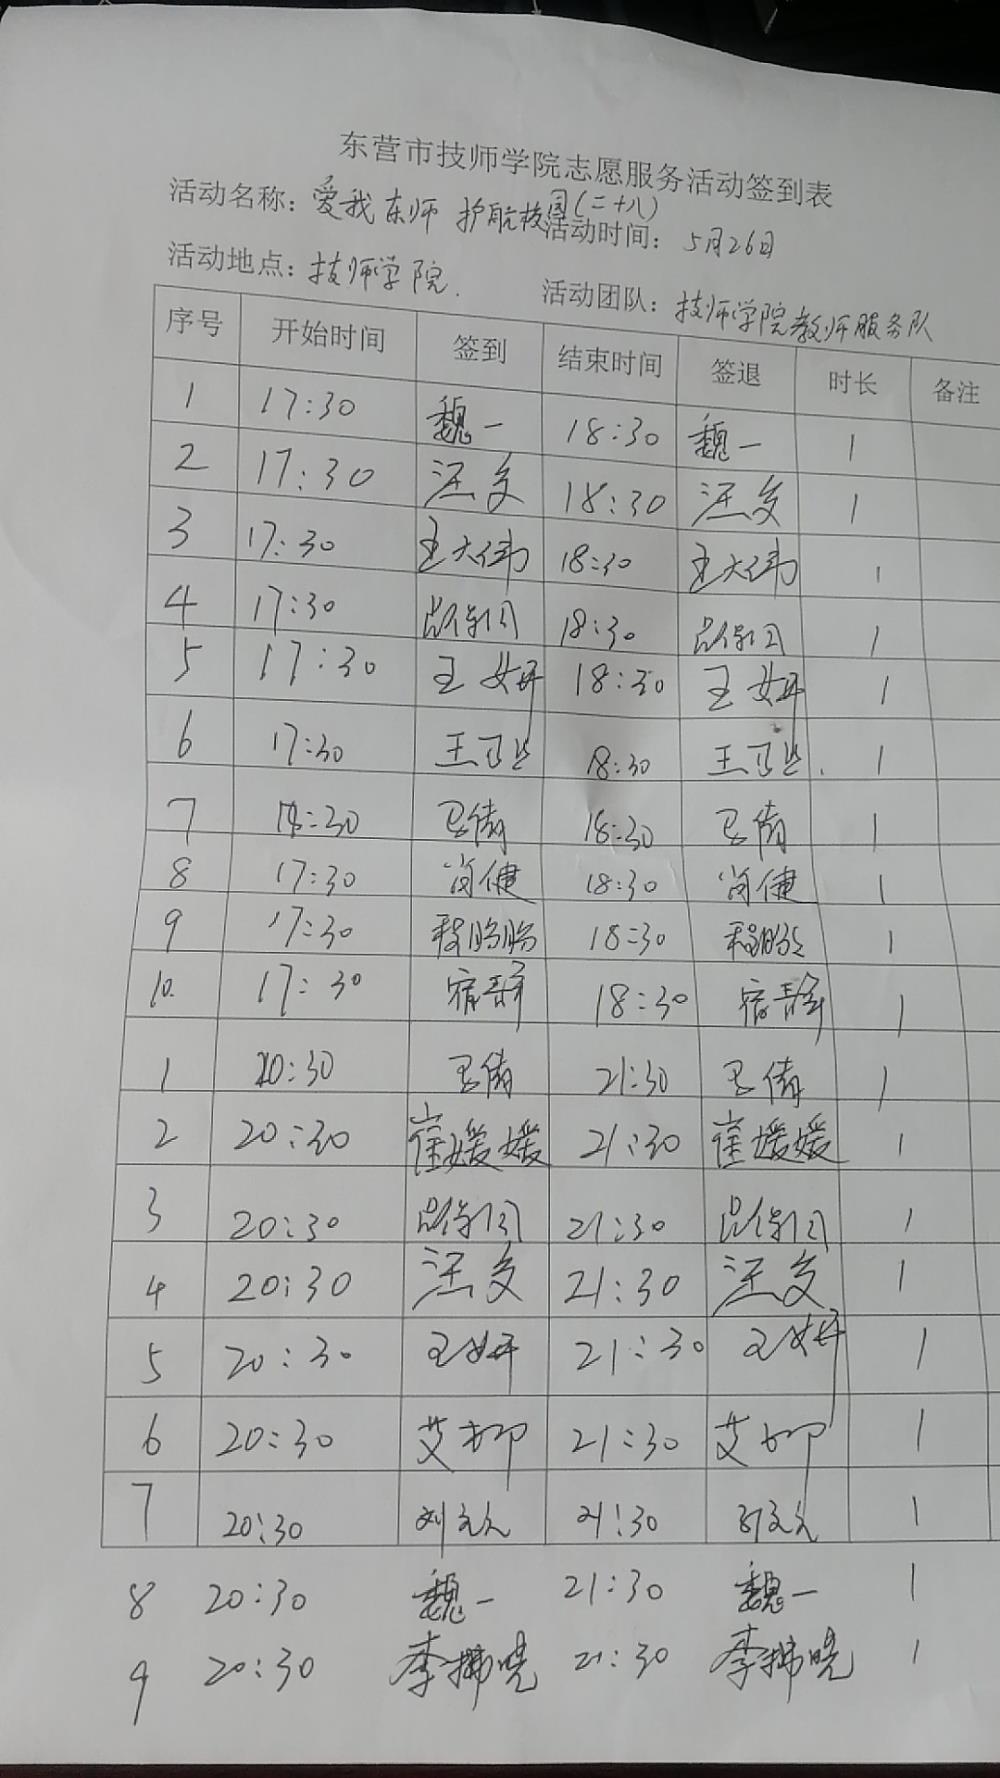 东营市技师学院志愿服务活动签到表
活动名称：爱我东师 护航校园(二十八) 活动时间： 5月26日
活动地点：技师学院. 活动团队：技师学院教师服务队
序号 开始时间 签到 结束时间 签退 时长 备注
1 17:30 魏一 18:30 魏一 1
2 17:30 18:30 1
3 17:30 王大伟 18:30 王大伟 1
4 17:30 18:30 1
5 17:30 王妍 18:30 王妍 1
6 17:30 18:30 1
7 :30 18:30 1
8 17:30 18:30 1
9 17:30 程盼盼 18:30 程盼盼 1
10. 17:30 18:30 1
1 20:30 21:30 1
2 20:30 崔媛媛 21:30 崔媛媛 1
3 20:30 21:30 1
4 20:30 21:30 1
5 20:30 王妍 21:30 王妍 1
6 20:30 21:30 1
7 20:30 21:30 1
8 20:30 魏一 21:30 魏一 1
9 20:30 李拂晓 21:30 李拂晓 1